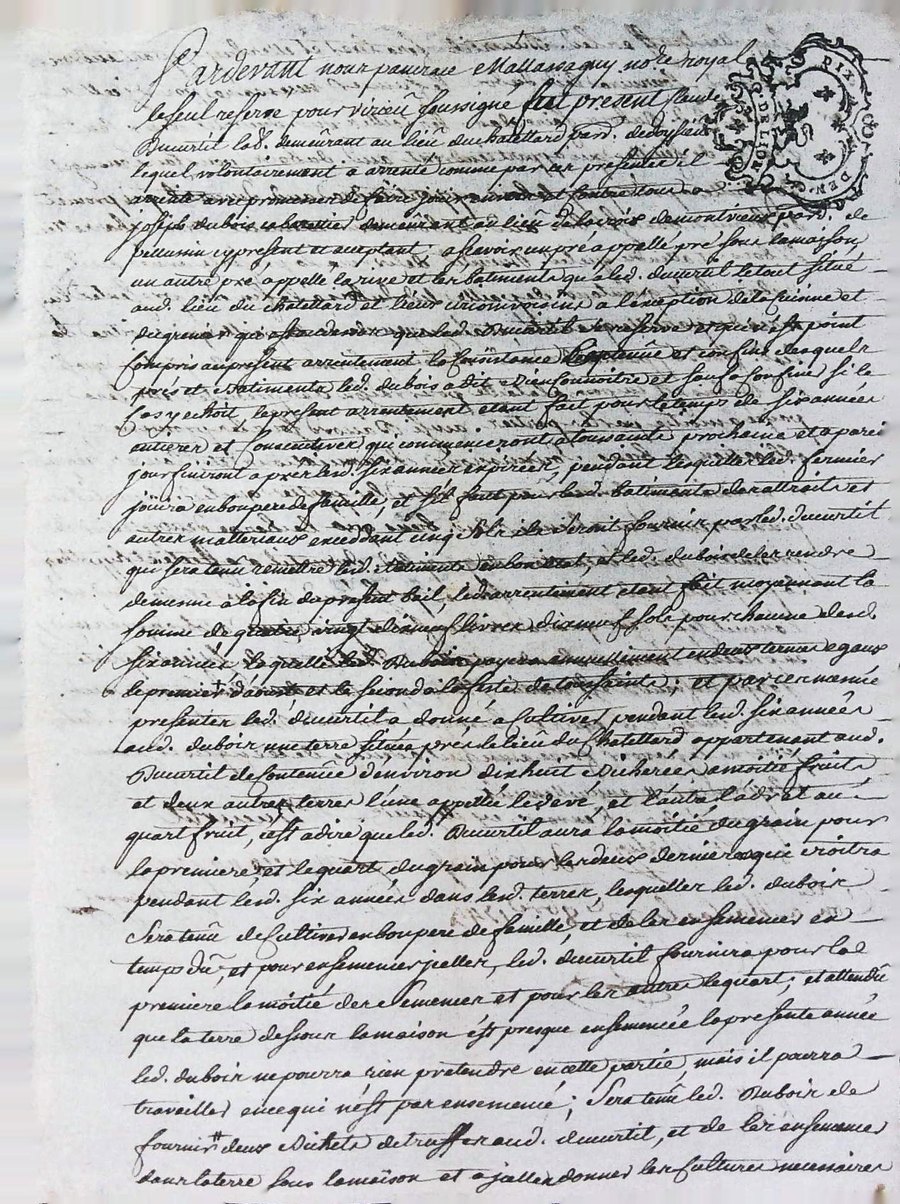 Pardevant nous pancrace Mallassagny note royal
le seul reservé pour virieu soussigné fut present claude
Ducurtil lab. demeurant au lieu du chatellard par. de doyssieu
lequel volontairement a arrenté comme par ces presentes il
arrente avec promesse de faire jouir envers et contre tous a
joseph dubois cabaretier demeurant au lieu de la croix de montvieux par. de
pelussin cy present et aceptant ascavoir un pré appellé pré sous la maison,
un autre pré appellé la rive et les batiments qu'a led. ducurtil le tout situé
aud. lieu du chatellard et lieux circonvoisins a l'exception de la
du grenier qui est au dessus que led. Ducurtil se reserve et qui n'est point
compris au present arrentement la consistance contenue et confins desquels
prés et Batiments led. dubois a dit bien connoitre et sauf a confiner si le
cas y echoit, le present arrentement etant fait pour le temps de six années
entieres et consecutives qui commenceront a toussaints prochaine et a pareil
jour finiront apres lesd. six années expirées, pendant lesquelles led. fermier
jouira en bon pere de famille, et s'il faut pour lesd. batiments des attraits et
autres matteriaux exceddant cinq sols ils seront fournis par led. ducurtil
qui sera tenu remettre led. batiments en bon état, et led. dubois de les rendre
de meme a la fin du present bail, led. arrentement etant fait moyennant la
somme de quatre vingt dixneuf livres dixneuf sols pour chacune desd.
six années laquelle led. Dubois payera annuellement en deux termes egaux
le premier d'aoust et le second a la feste de toussaints; et par ces memes
presentes led. ducurtil a donné a cultiver pendant lesd. six années
aud. dubois une terre située près le lieu du Chatellard appartenant aud.
Ducurtil de contenue d'environ dixhuit bicherées a moitié fruits
et deux autres terres l'une appellée le devé, et l'autre ladret au
quart fruit, c'est a dire que led. Ducurtil aura la moitié du grain pour
la premiere et le quart du grain pour les deux dernieres qui croitra
pendant lesd. six années dans lesd. terres, lesquelles led. dubois
sera tenu de cultiver en bon pere de famille, et de les ensemencer en
temps dû, et pour ensemencer jcelles, led. ducurtil fournira pour la
premiere la moitié des semences et pour les autres le quart; et attendu
que la terre dessous la maison est presque ensemencée la presente année
led. dubois ne pourra rien pretendre en cette partie, mais il pourra
travailler en ce qui n'est pas ensemencé; Sera tenu led. Dubois de
fournir deux Bichets de truffes aud. ducurtil, et de les ensemencer
dans la terre sous la maison et a jcelles donner les cultures necessaires
DIX
DEN.
G. DE LION